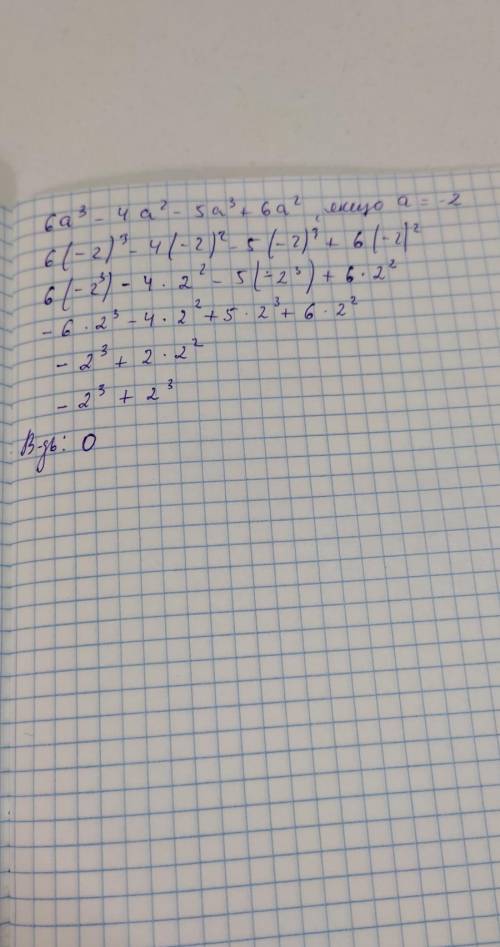 6a³ - 4a² - 5a³ + 6a², якщо a = -2
6(-2)³ - 4(-2)² - 5(-2)³ + 6(-2)²
6(-2³) - 4 · 2² - 5(-2³) + 6 · 2²
- 6 · 2³ - 4 · 2² + 5 · 2³ + 6 · 2²
- 2³ + 2 · 2²
- 2³ + 2³
В-дь: 0